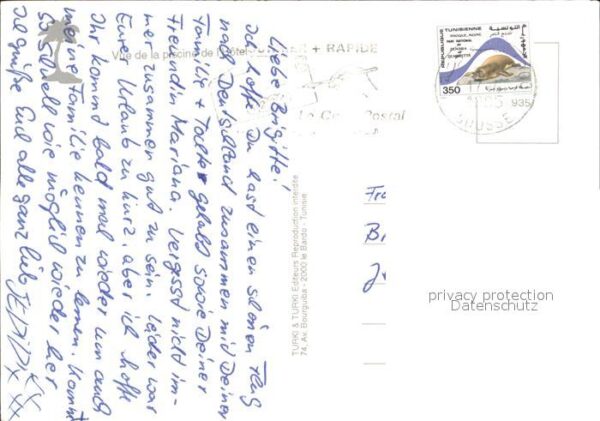 Liebe Brigitte!
Ich hoffe Du hast einen schönen Flug
nach Deutschland zusammen mit Deiner
Familie + Tochter gehabt sowie Deiner
Freundin Mariana. Vergesst nicht im-
mer zusammen gut zu sein. Leider war
Eur Urlaub zu kurz, aber ich hoffe
Ihr kommt bald mal wieder um auch
meine Familie kennen zu lernen. Kommt
so schnell wie möglich wieder her
Ich grüße Euch alle ganz lieb
Vue de la piscine de l'hôtel
+ RAPIDE
Le Code Postal
TURKI & TURKI Editeurs Reproduction interdite
74, Av. Bourguiba - 2000 le Bardo - Tunisie
REPUBLIQUE TUNISIENNE
350
935
SOUSSE
privacy protection
Datenschutz